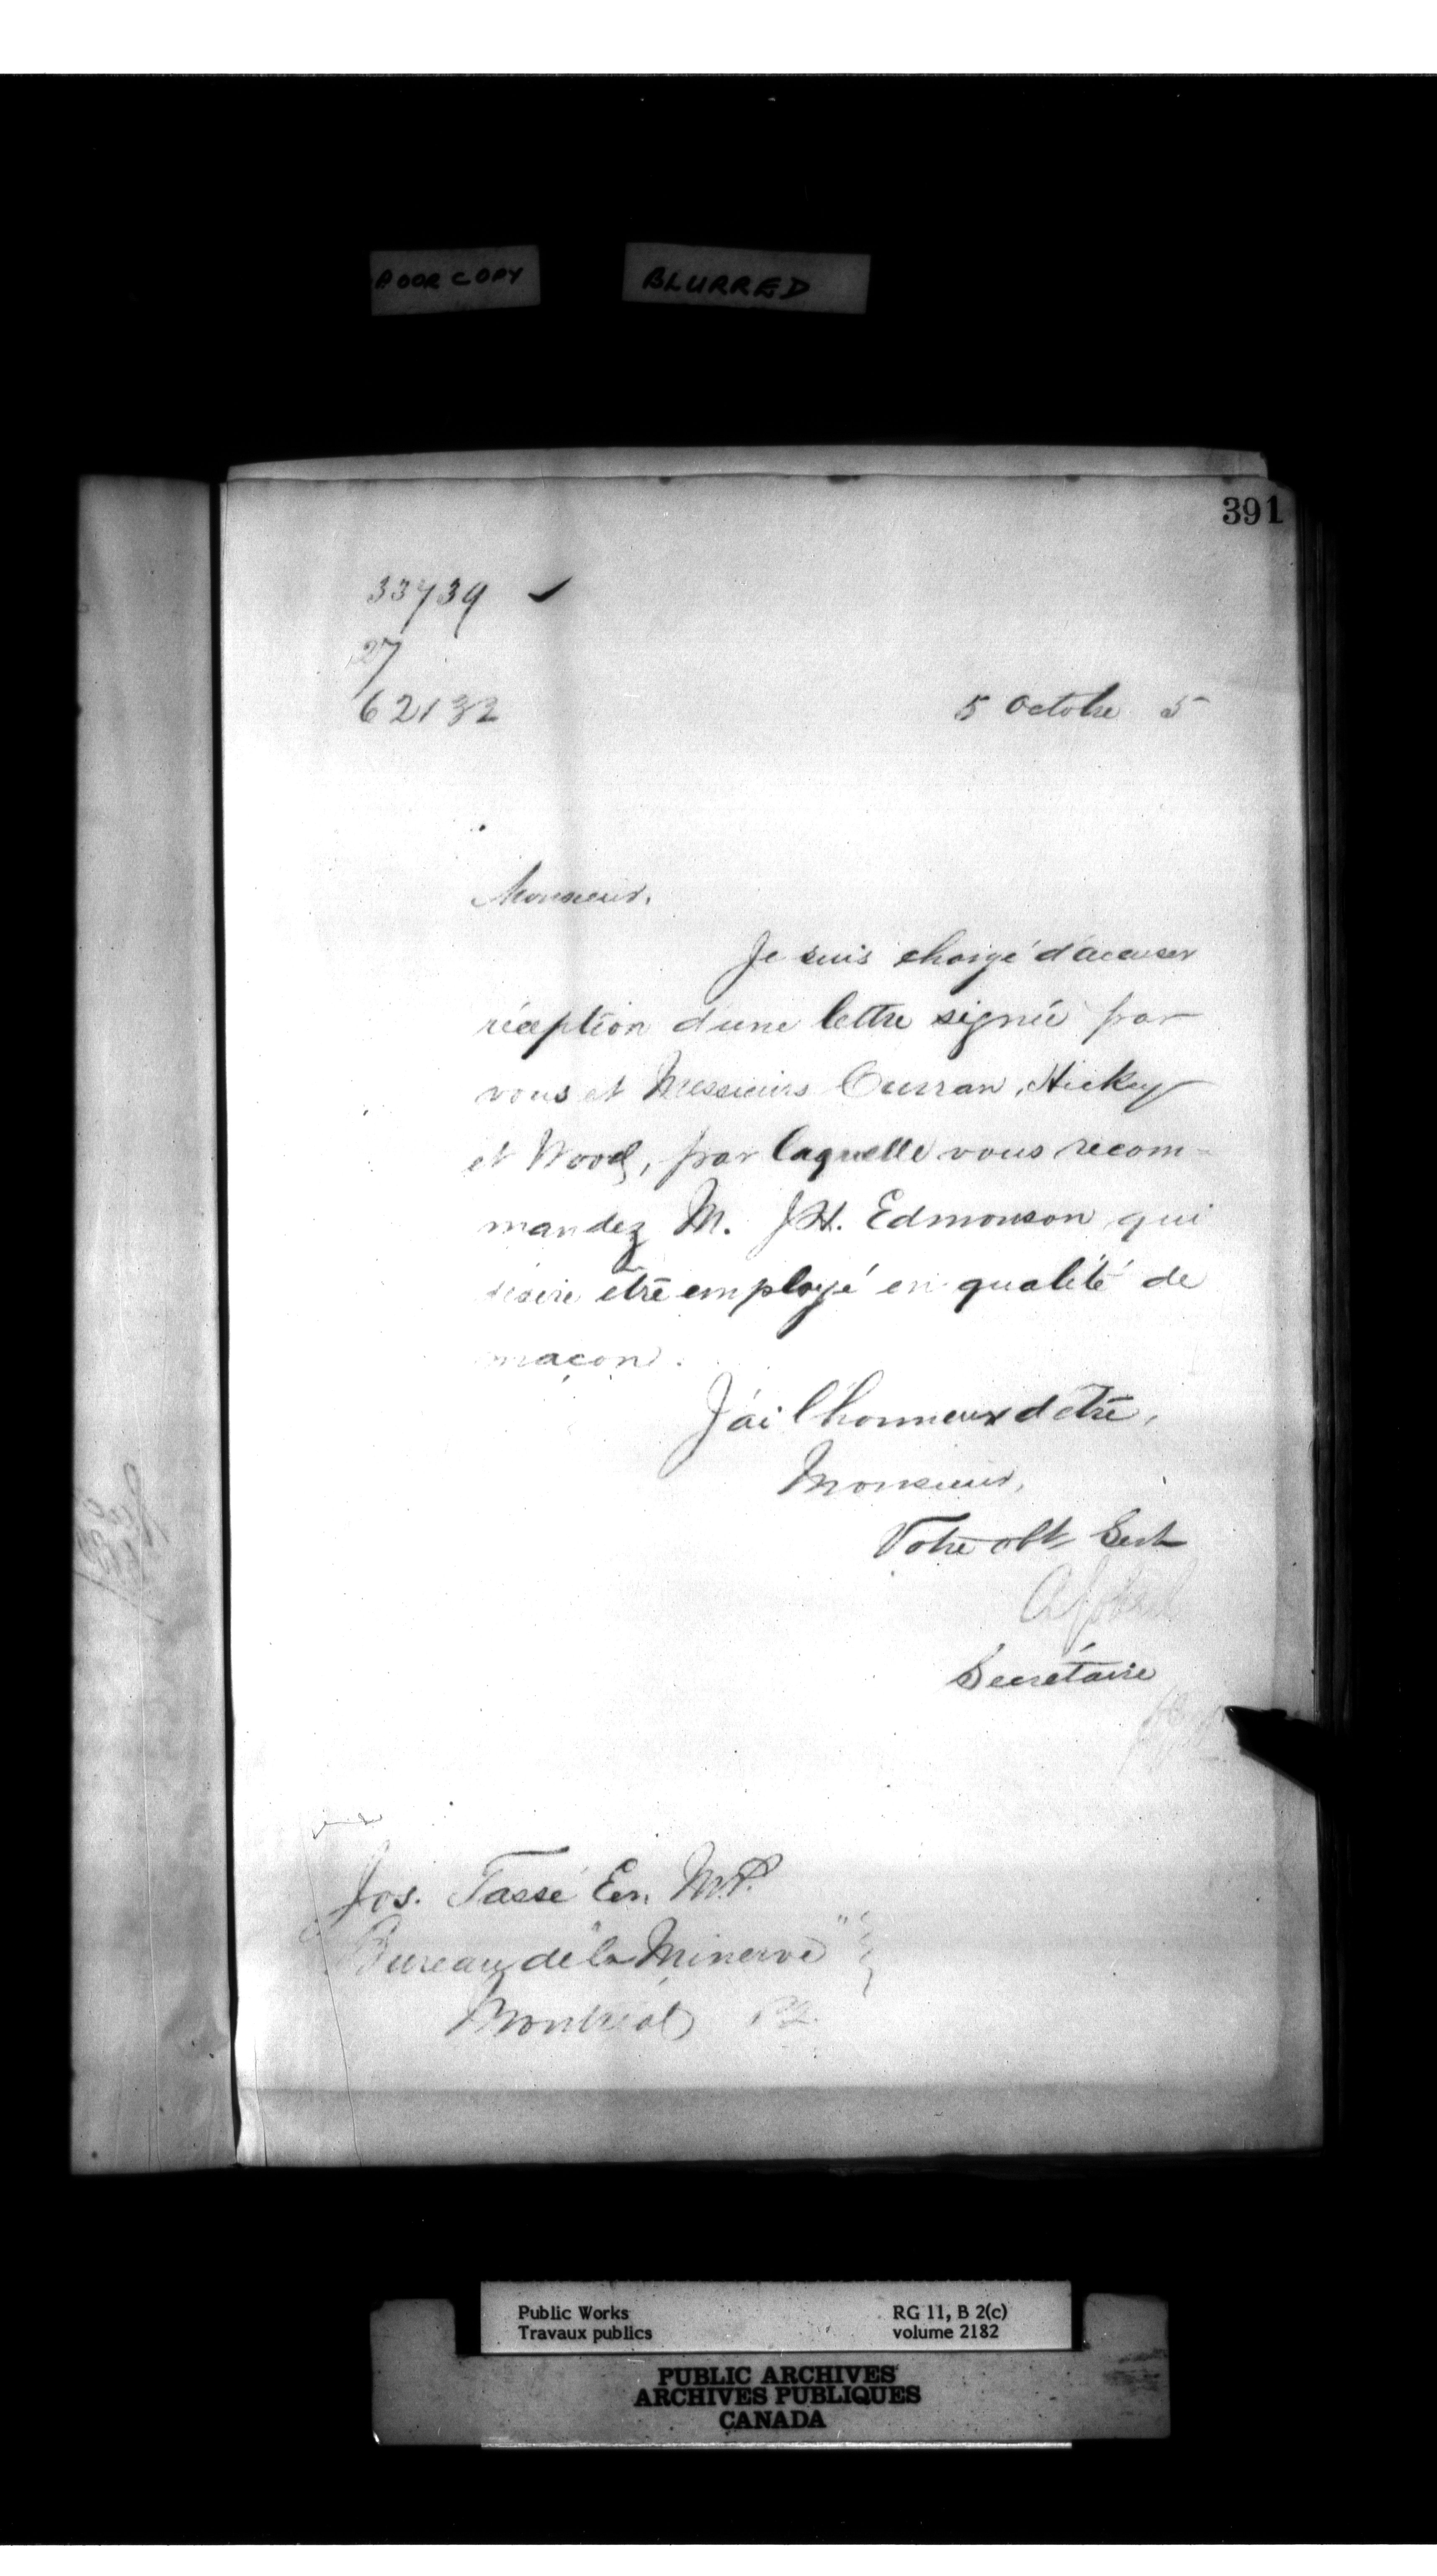 POOR COPY BLURRED
391
33739 ✓
27
62132
5 Octobre 5
Monsieur,
Je suis chargé d'accuser
réception d'une lettre signée par
vous et Messieurs Curran, Hickey
et Wood, par laquelle vous recom-
mandez M. J.H. Edmonson qui
désire être employé en qualité de
maçon.
J'ai l'honneur d'être,
Monsieur,
Votre obt Sert
Secrétaire
Jos. Tassé Ecr. M.P.
Bureau de "la Minerve"
Montréal P.Q.
Public Works RG 11, B 2(c)
Travaux publics volume 2182
PUBLIC ARCHIVES
ARCHIVES PUBLIQUES
CANADA